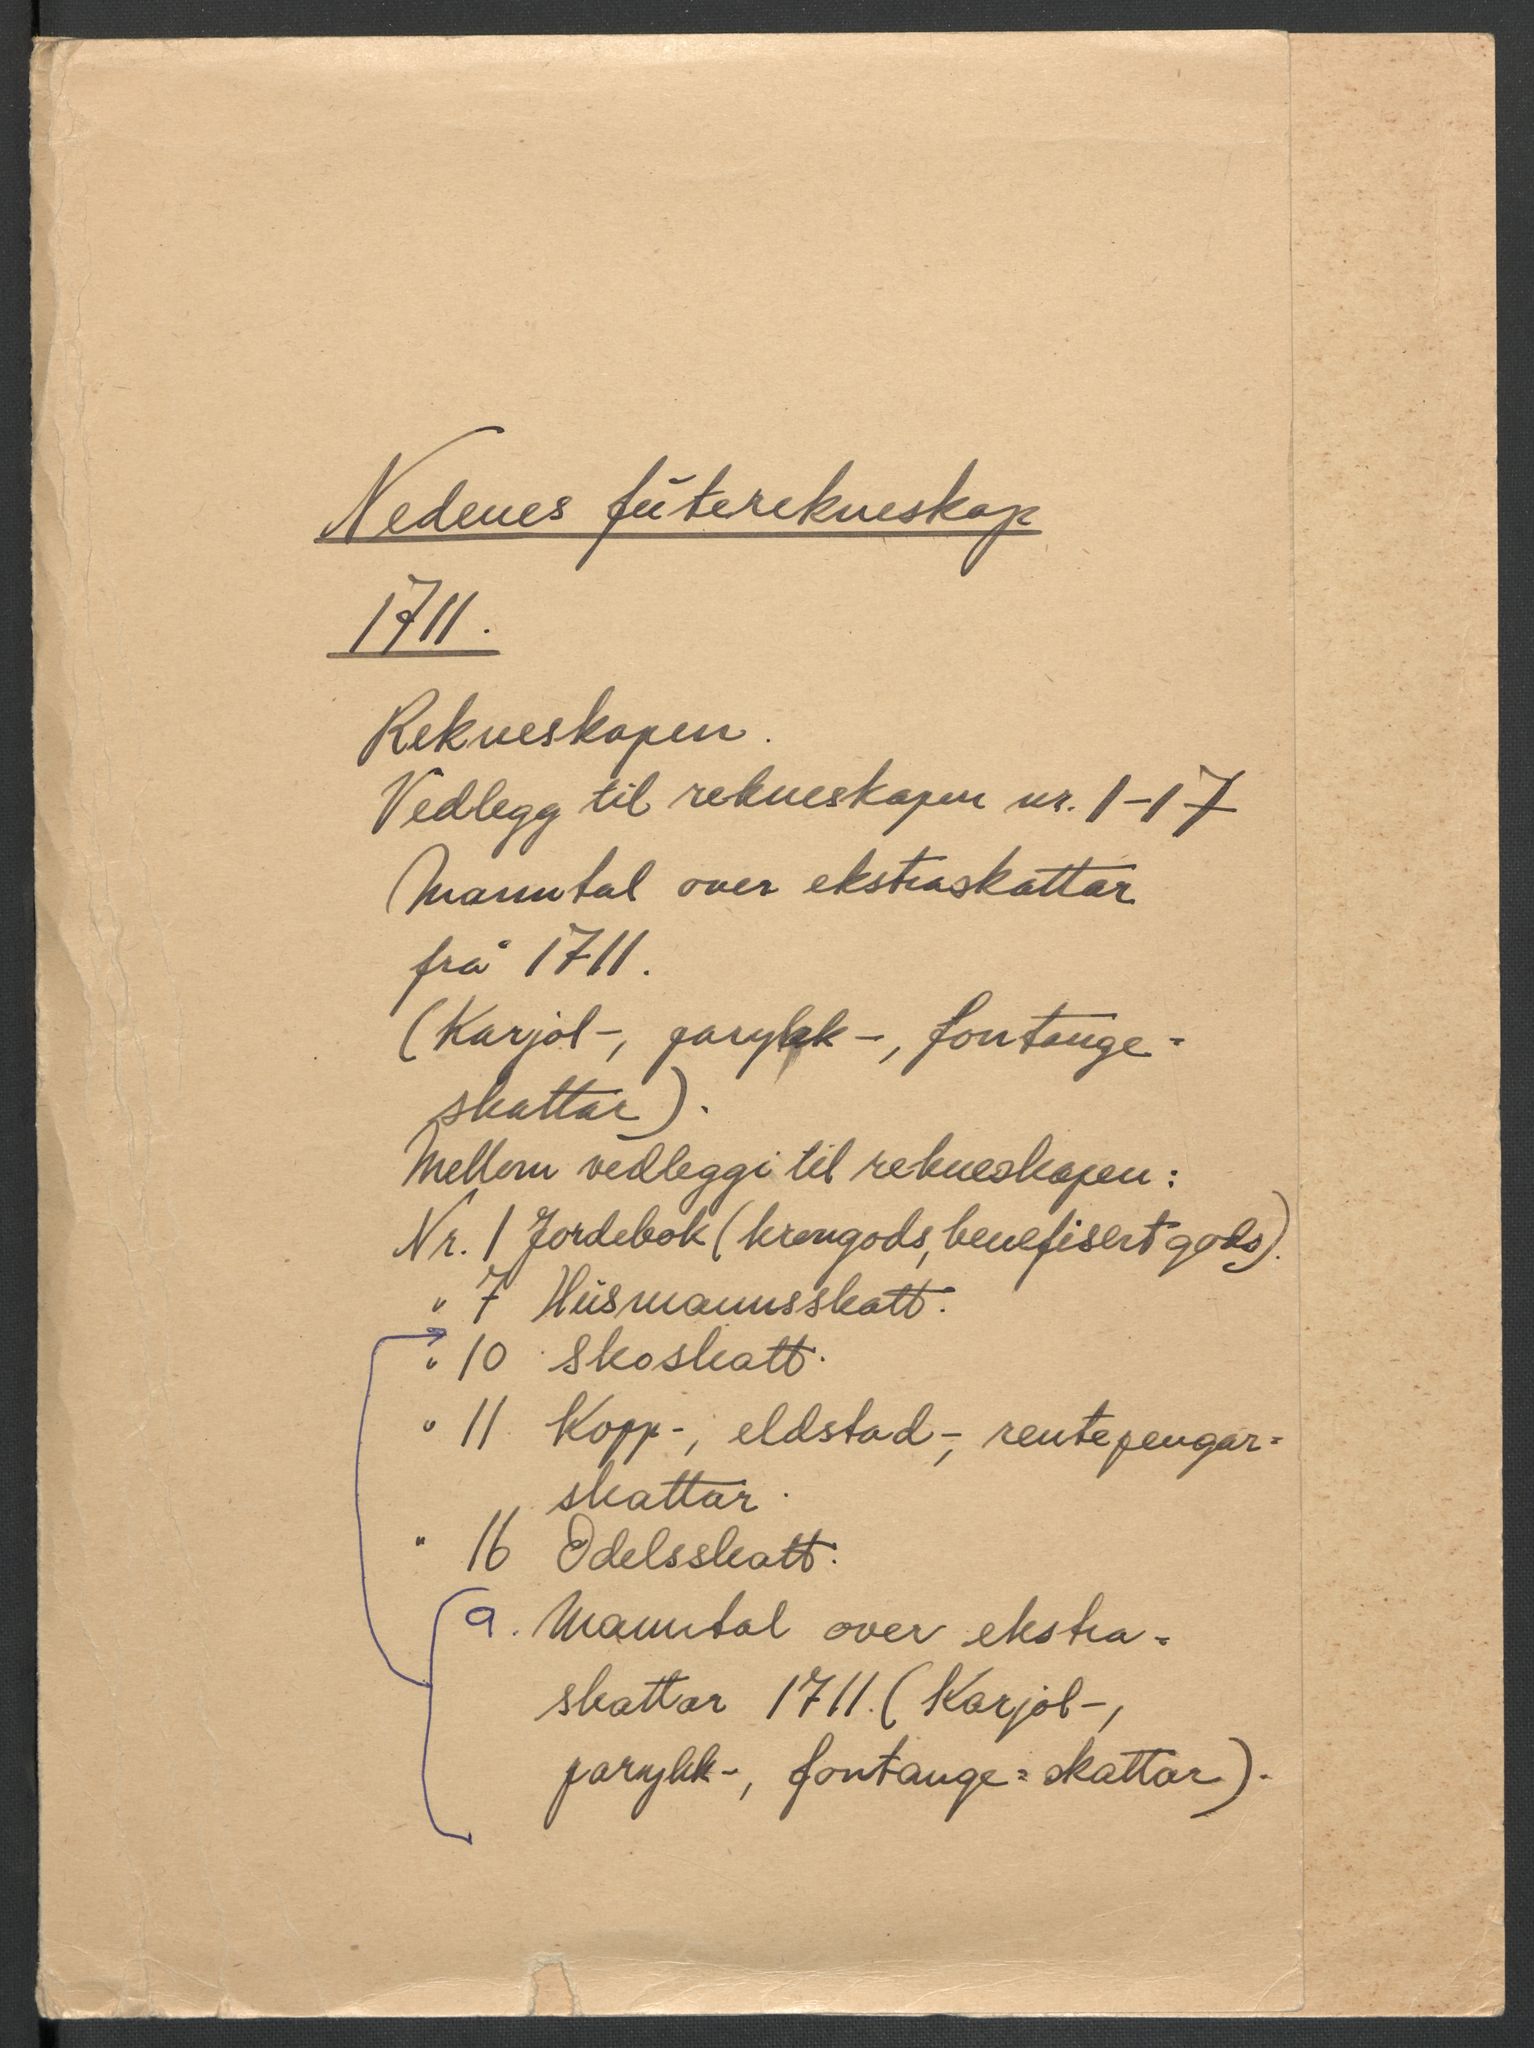 Nedenes futerekneskap
1711.
Rekneskapen.
Vedlegg til rekneskapen nr. 1-17
Manntal over ekstraskattar
frå 1711.
(Karjol-, parykk-, fontange=
skattar).
Mellom vedleggi til rekneskapen:
Nr. 1 Jordebok (krongods, benefisert gods).
" 7 Husmannsskatt.
" 10 Skoskatt.
" 11 Kopp-, eldstad-, rentepengar=
skattar.
" 16 Odelsskatt.
9. Manntal over ekstra=
skattar 1711. (Karjol-,
parykk-, fontange=skattar).